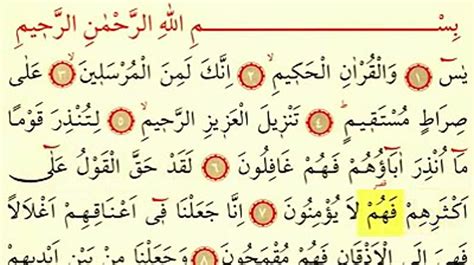 بِسْمِ اللّٰهِ الرَّحْمٰنِ الرَّحٖيمِ
يٰسٓ ﴿١﴾ وَالْقُرْاٰنِ الْحَكٖيمِۙ ﴿٢﴾ اِنَّكَ لَمِنَ الْمُرْسَلٖينَۙ ﴿٣﴾ عَلٰى
صِرَاطٍ مُسْتَقٖيمٍؕ ﴿٤﴾ تَنْزٖيلَ الْعَزٖيزِ الرَّحٖيمِۙ ﴿٥﴾ لِتُنْذِرَ قَوْمًا
مَٓا اُنْذِرَ اٰبَٓاؤُ۬هُمْ فَهُمْ غَافِلُونَ ﴿٦﴾ لَقَدْ حَقَّ الْقَوْلُ عَلٰٓى
اَكْثَرِهِمْ فَهُمْ لَا يُؤْمِنُونَ ﴿٧﴾ اِنَّا جَعَلْنَا فٖٓى اَعْنَاقِهِمْ اَغْلَالًا
فَهِىَ اِلَى الْاَذْقَانِ فَهُمْ مُقْمَحُونَ ﴿٨﴾ وَجَعَلْنَا مِنْ بَيْنِ اَيْدٖيهِمْ